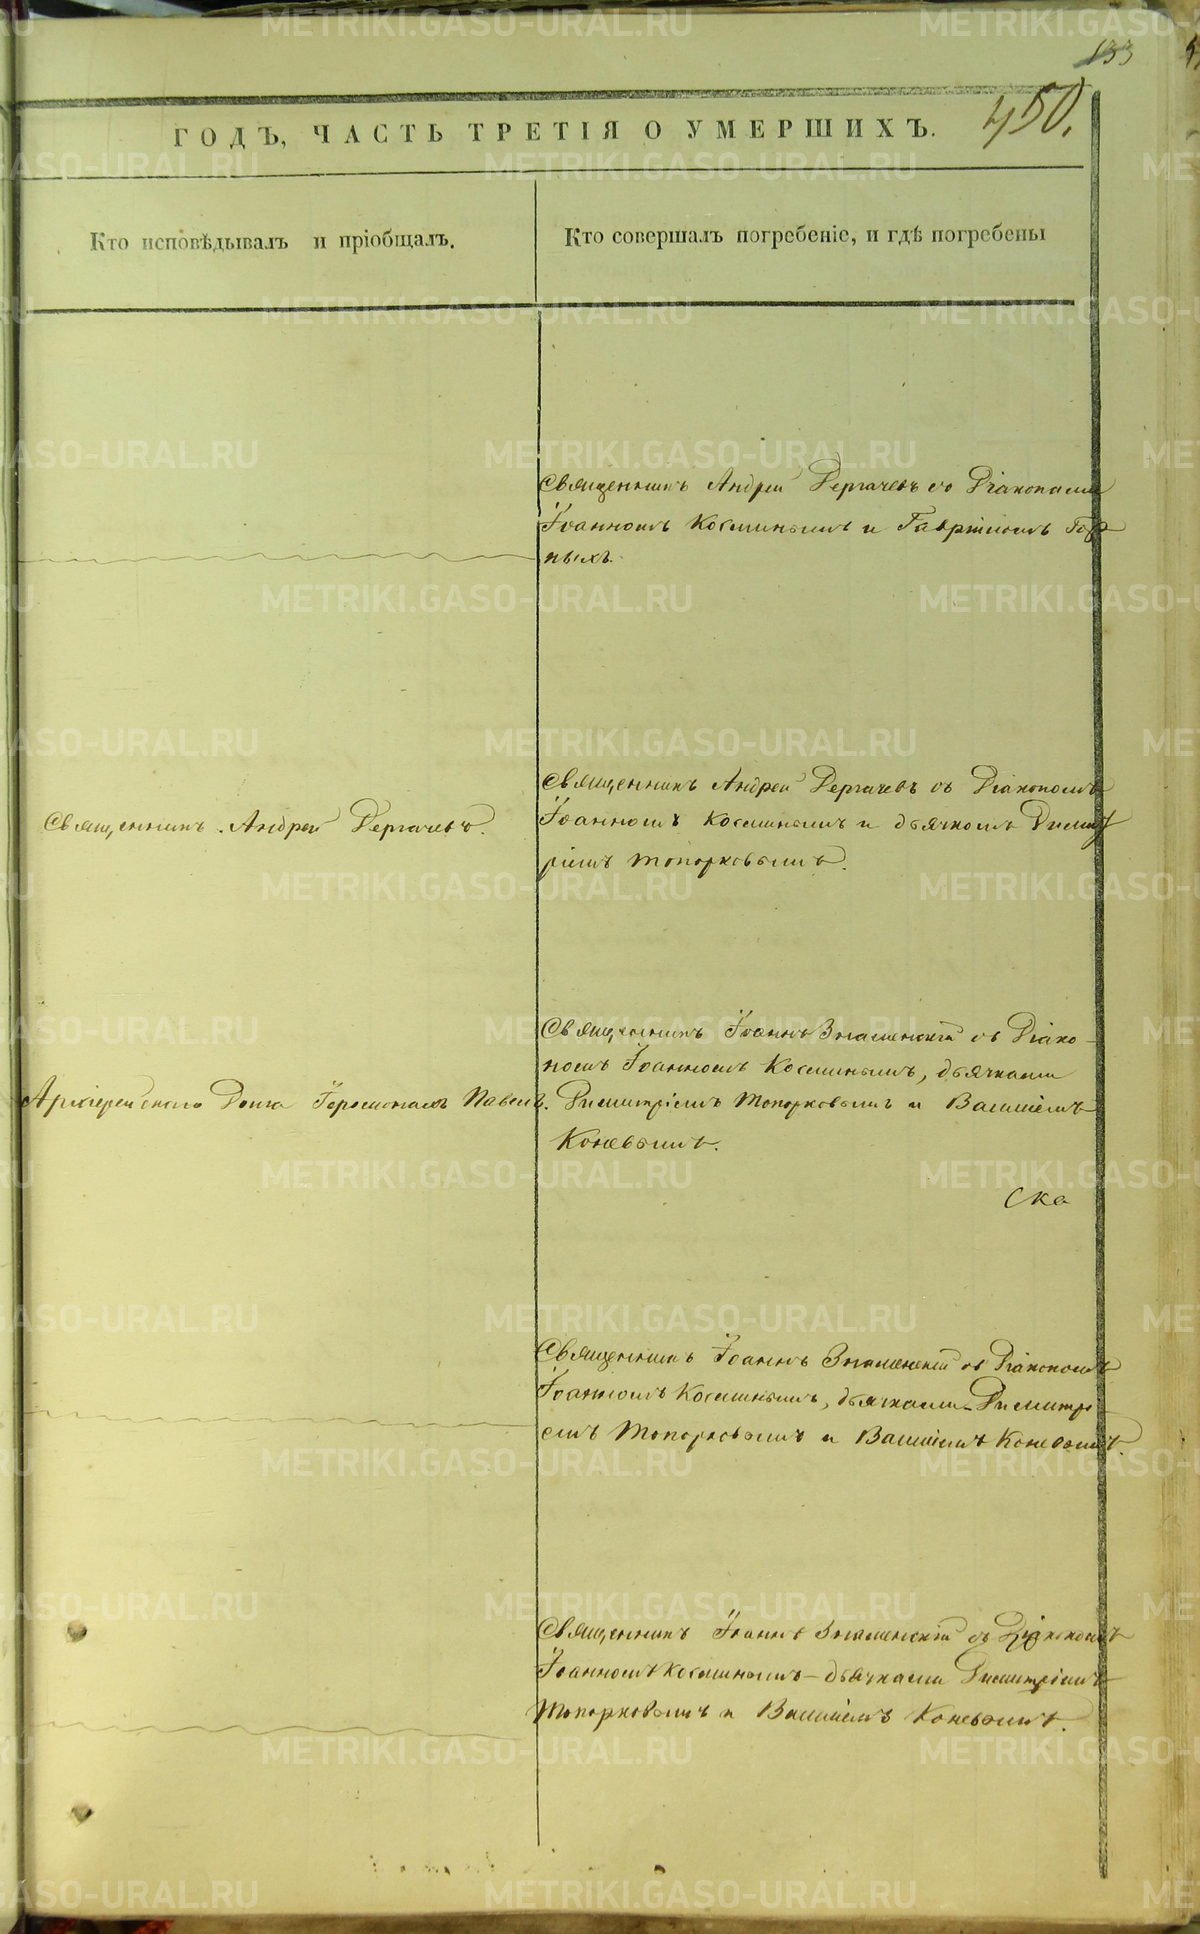 133
450.
ГОДЪ, ЧАСТЬ ТРЕТІЯ О УМЕРШИХЪ.
Кто исповѣдывалъ и пріобщалъ.
Кто совершалъ погребеніе, и гдѣ погребены
Священникъ Андрей Дергачевъ со Діаконами
Іоанномъ Косминымъ и Гавріиломъ Гор
ныхъ.
Священникъ Андрей Дергачевъ.
Священникъ Андрей Дергачевъ съ Діакономъ
Іоанномъ Косминымъ и дьячкомъ Димит
ріемъ Топорковымъ.
Архіерейскаго Дома Іеромонахъ Павелъ.
Священникъ Іоаннъ Знаменскій съ Діако-
номъ Іоанномъ Косминымъ, дьячками
Димитріемъ Топорковымъ и Василіемъ
Коневымъ.
Ска
Священникъ Іоаннъ Знаменскій съ Діакономъ
Іоанномъ Косминымъ, дьячками Димитрі
емъ Топорковымъ и Василіемъ Коневымъ.
Священникъ Іоаннъ Знаменскій съ Діакономъ
Іоанномъ Косминымъ – дьячками Димитріемъ
Топорковымъ и Василіемъ Коневымъ.
METRIKI.GASO-URAL.RU